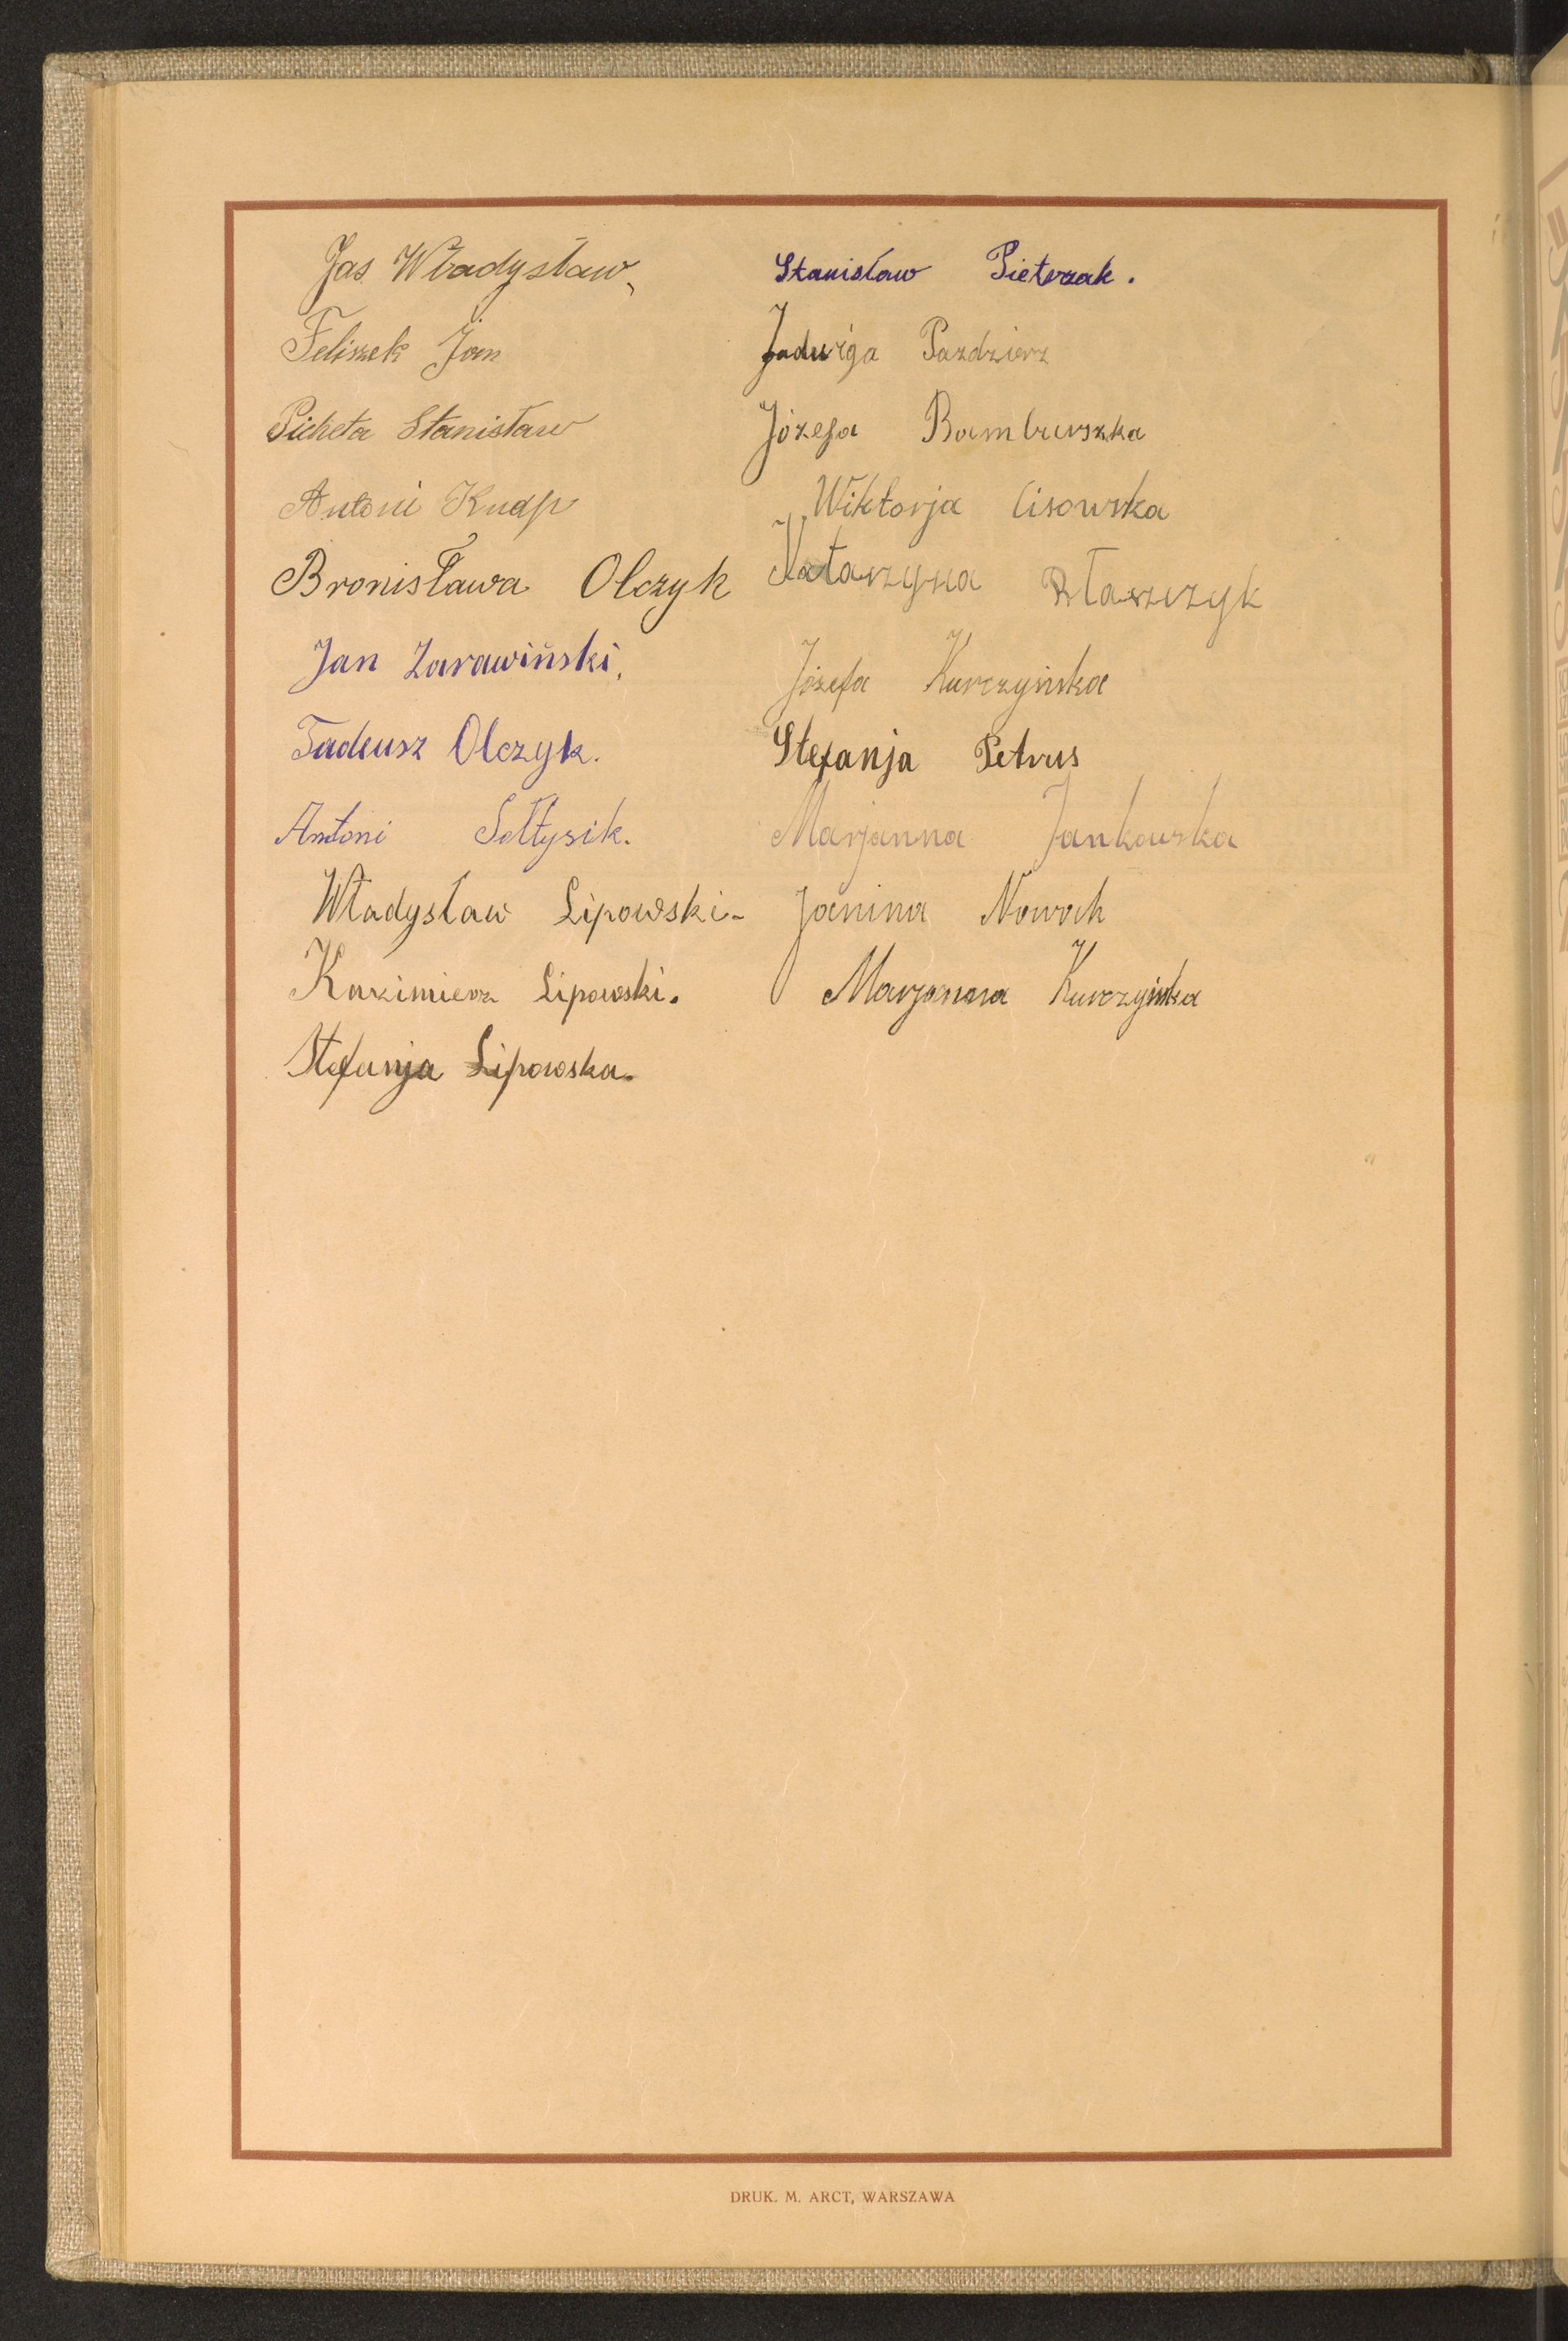 Jas Władysław
Feliszek Jan
Picheta Stanisław
Antoni Knap
Bronisława Olczyk
Jan Zarawiński.
Tadeusz Olczyk.
Antoni Sołtysik.
Władysław Lipowski-
Kazimierz Lipowski.
Stefanja Lipowska.
Stanisław Pietrzak.
Jadwiga Pazdzierz
Józefa
Wiktorja Cisowska
Katarzyna
Józefa Kurczyńska
Stefanja Petrus
Marjanna Jankowska
Janina Nowak
Marjanna Kurczyńska
DRUK. M. ARCT, WARSZAWA